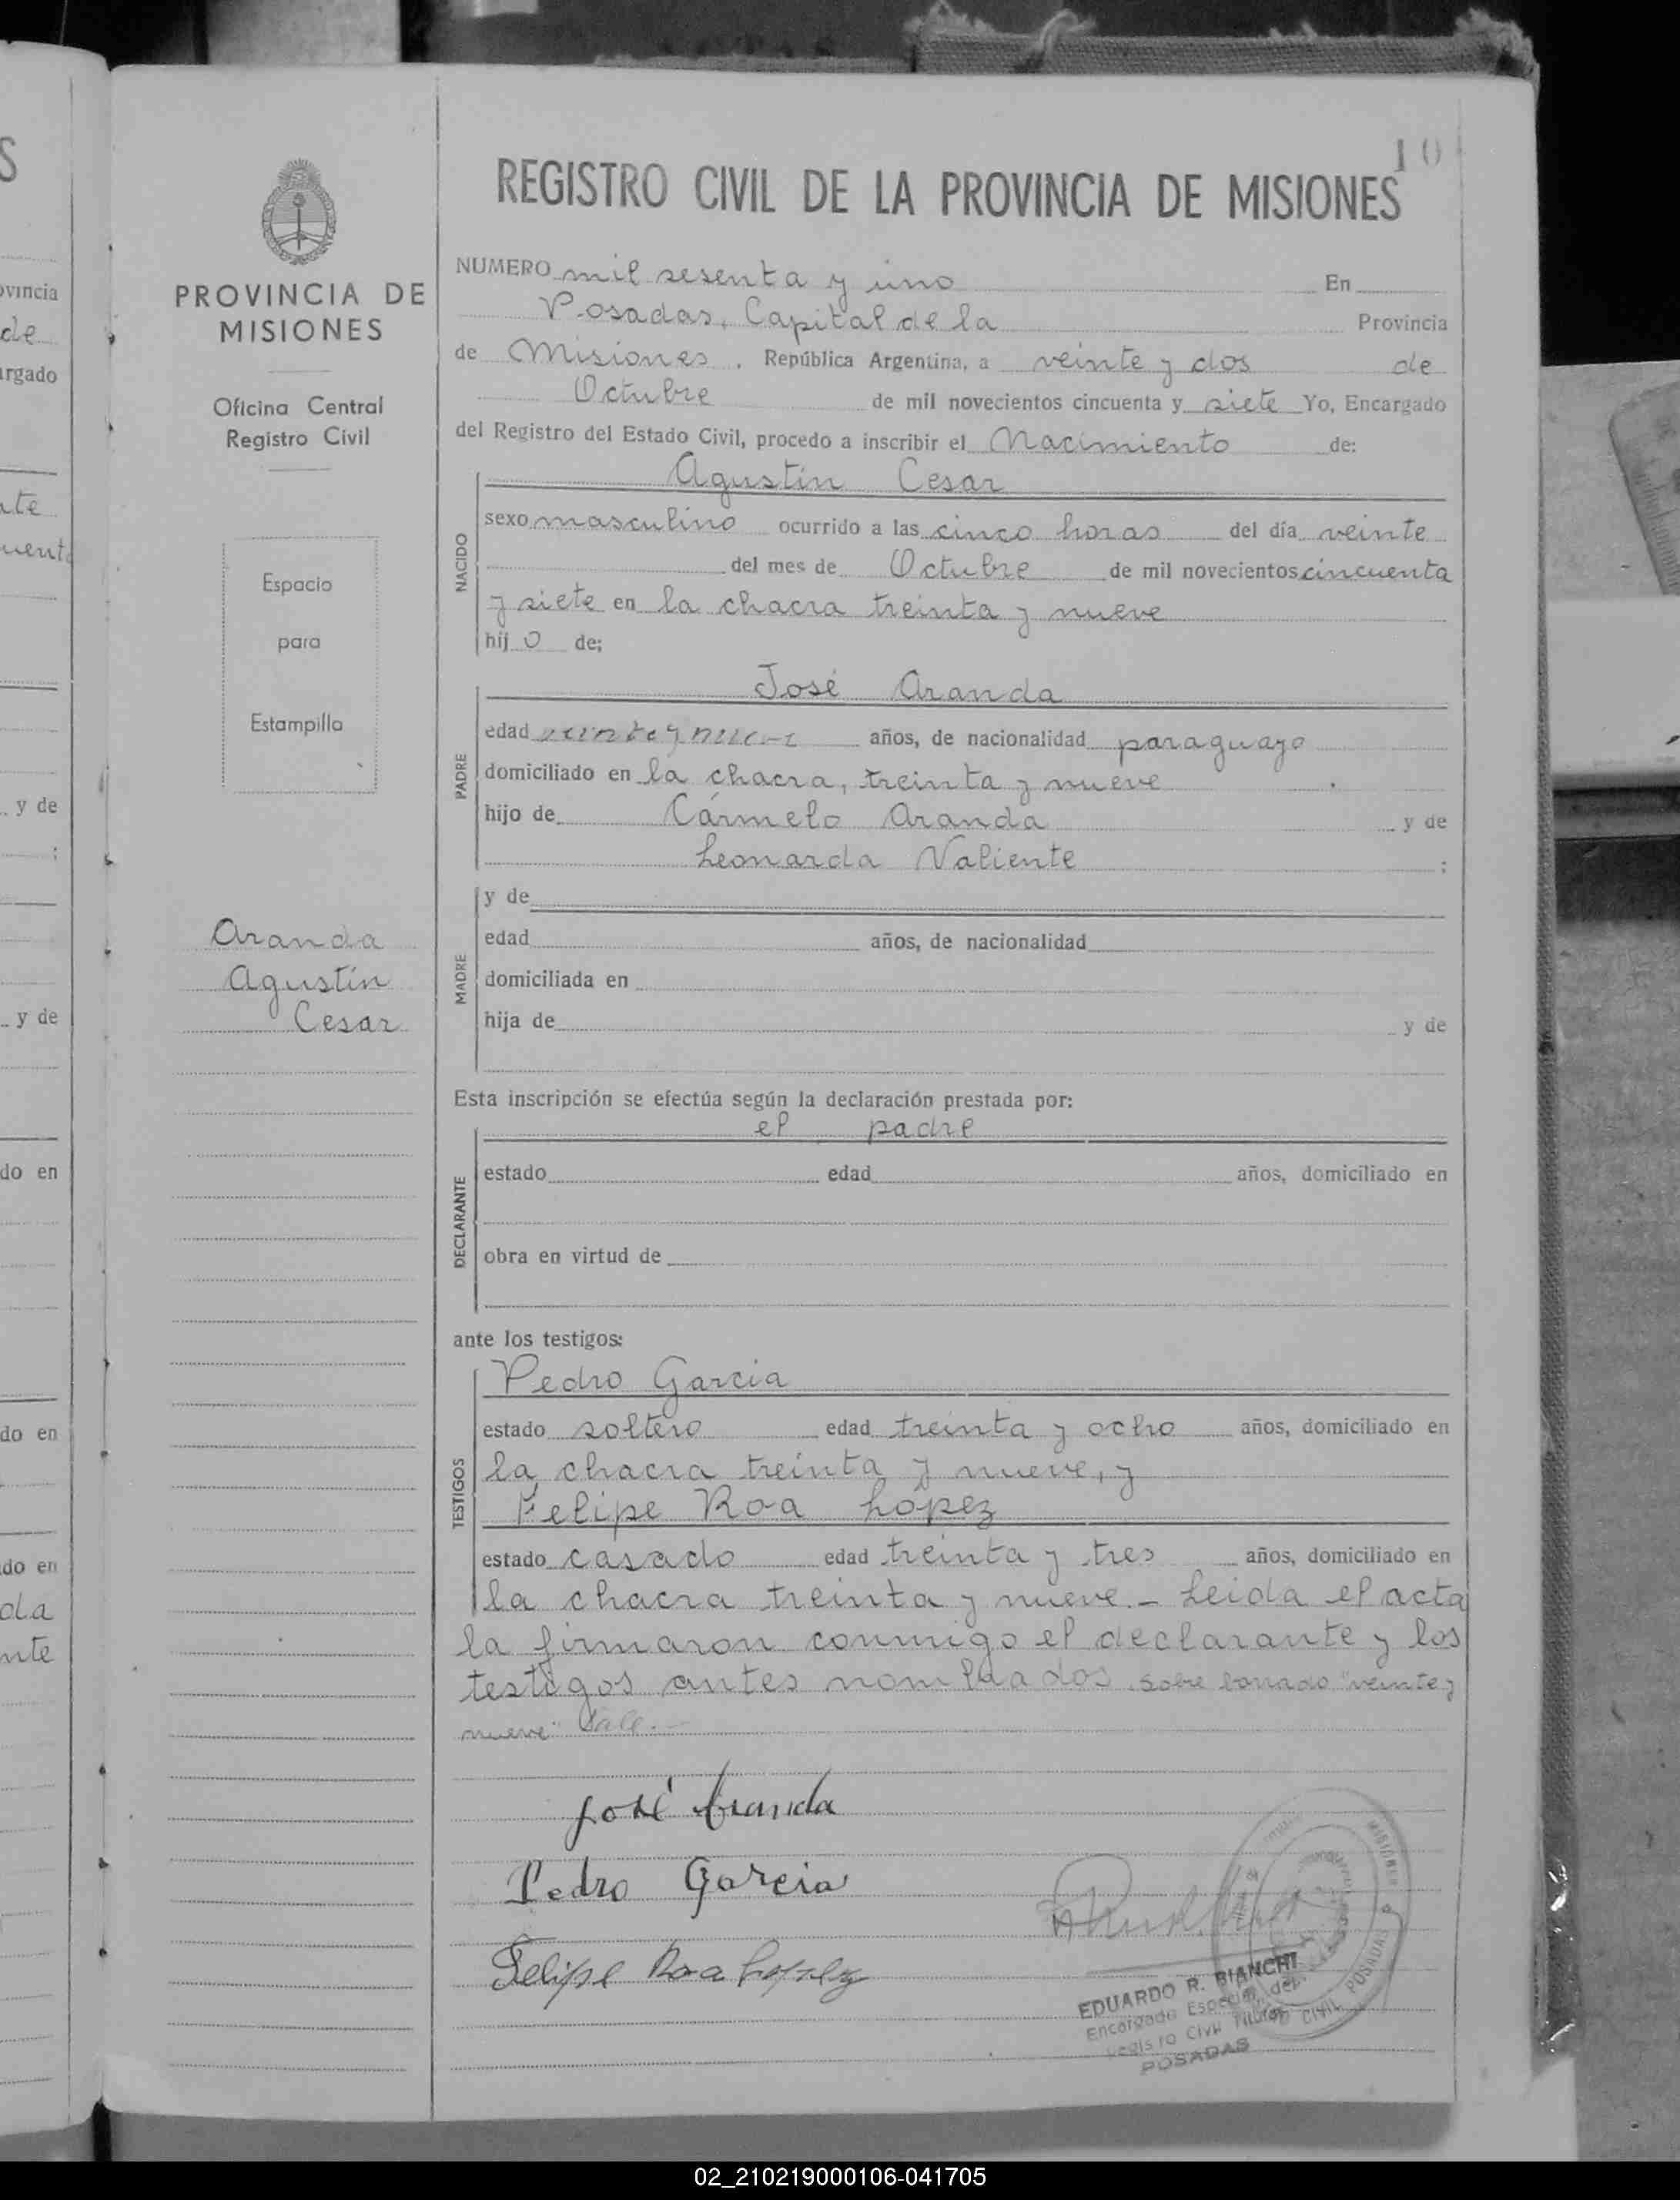 S
vincia
de
rgado
y de
y de
do en
do en
do en
PROVINCIA DE
MISIONES
Oficina Central
Registro Civil
Espacio
para
Estampilla
Aranda
Agustín
Cesar
10
REGISTRO CIVIL DE LA PROVINCIA DE MISIONES
NUMERO mil sesenta y uno En
Posadas, Capital de la Provincia
de Misiones, República Argentina, a veinte y dos de
Octubre de mil novecientos cincuenta y siete Yo, Encargado
del Registro del Estado Civil, procedo a inscribir el Nacimiento de:
Agustín Cesar
NACIDO
sexo masculino ocurrido a las cinco horas del día veinte
del mes de Octubre de mil novecientos cincuenta
y siete en la chacra treinta y nueve
hijo de;
José Aranda
PADRE
edad veinte y nueve años, de nacionalidad paraguayo
domiciliado en la chacra, treinta y nueve
hijo de Cármelo Aranda y de
Leonarda Valiente ;
MADRE
y de
edad años, de nacionalidad
domiciliada en
hija de y de
Esta inscripción se efectúa según la declaración prestada por:
el padre
DECLARANTE
estado edad años, domiciliado en
obra en virtud de
ante los testigos:
TESTIGOS
Pedro Garcia
estado soltero edad treinta y ocho años, domiciliado en
la chacra treinta y nueve, y
Felipe Roa Lopez
estado casado edad treinta y tres años, domiciliado en
la chacra treinta y nueve.- Leida el acta
la firmaron conmigo el declarante y los
testigos antes nombrados. Sobre borrado "veinte y
nueve" Vale.-
José Aranda
Pedro Garcia
Felipe Roa Lopez
MISIONES
POSADAS
CIVIL
EDUARDO R. BIANCHI
Encargado Especial del
Registro Civil Titular
POSADAS
02_210219000106-041705